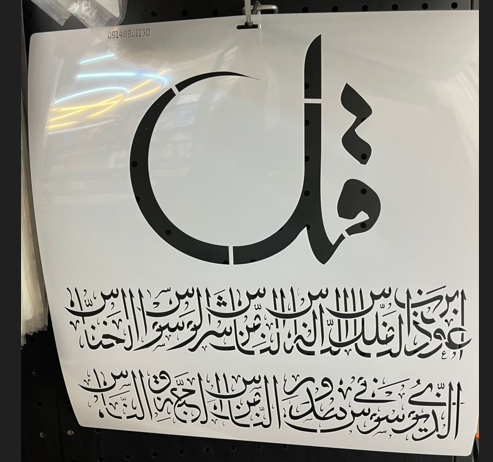 09148901130
قل
اعوذ برب الناس ملك الناس اله الناس من شر الوسواس الخناس
الذي يوسوس في صدور الناس من الجنة و الناس